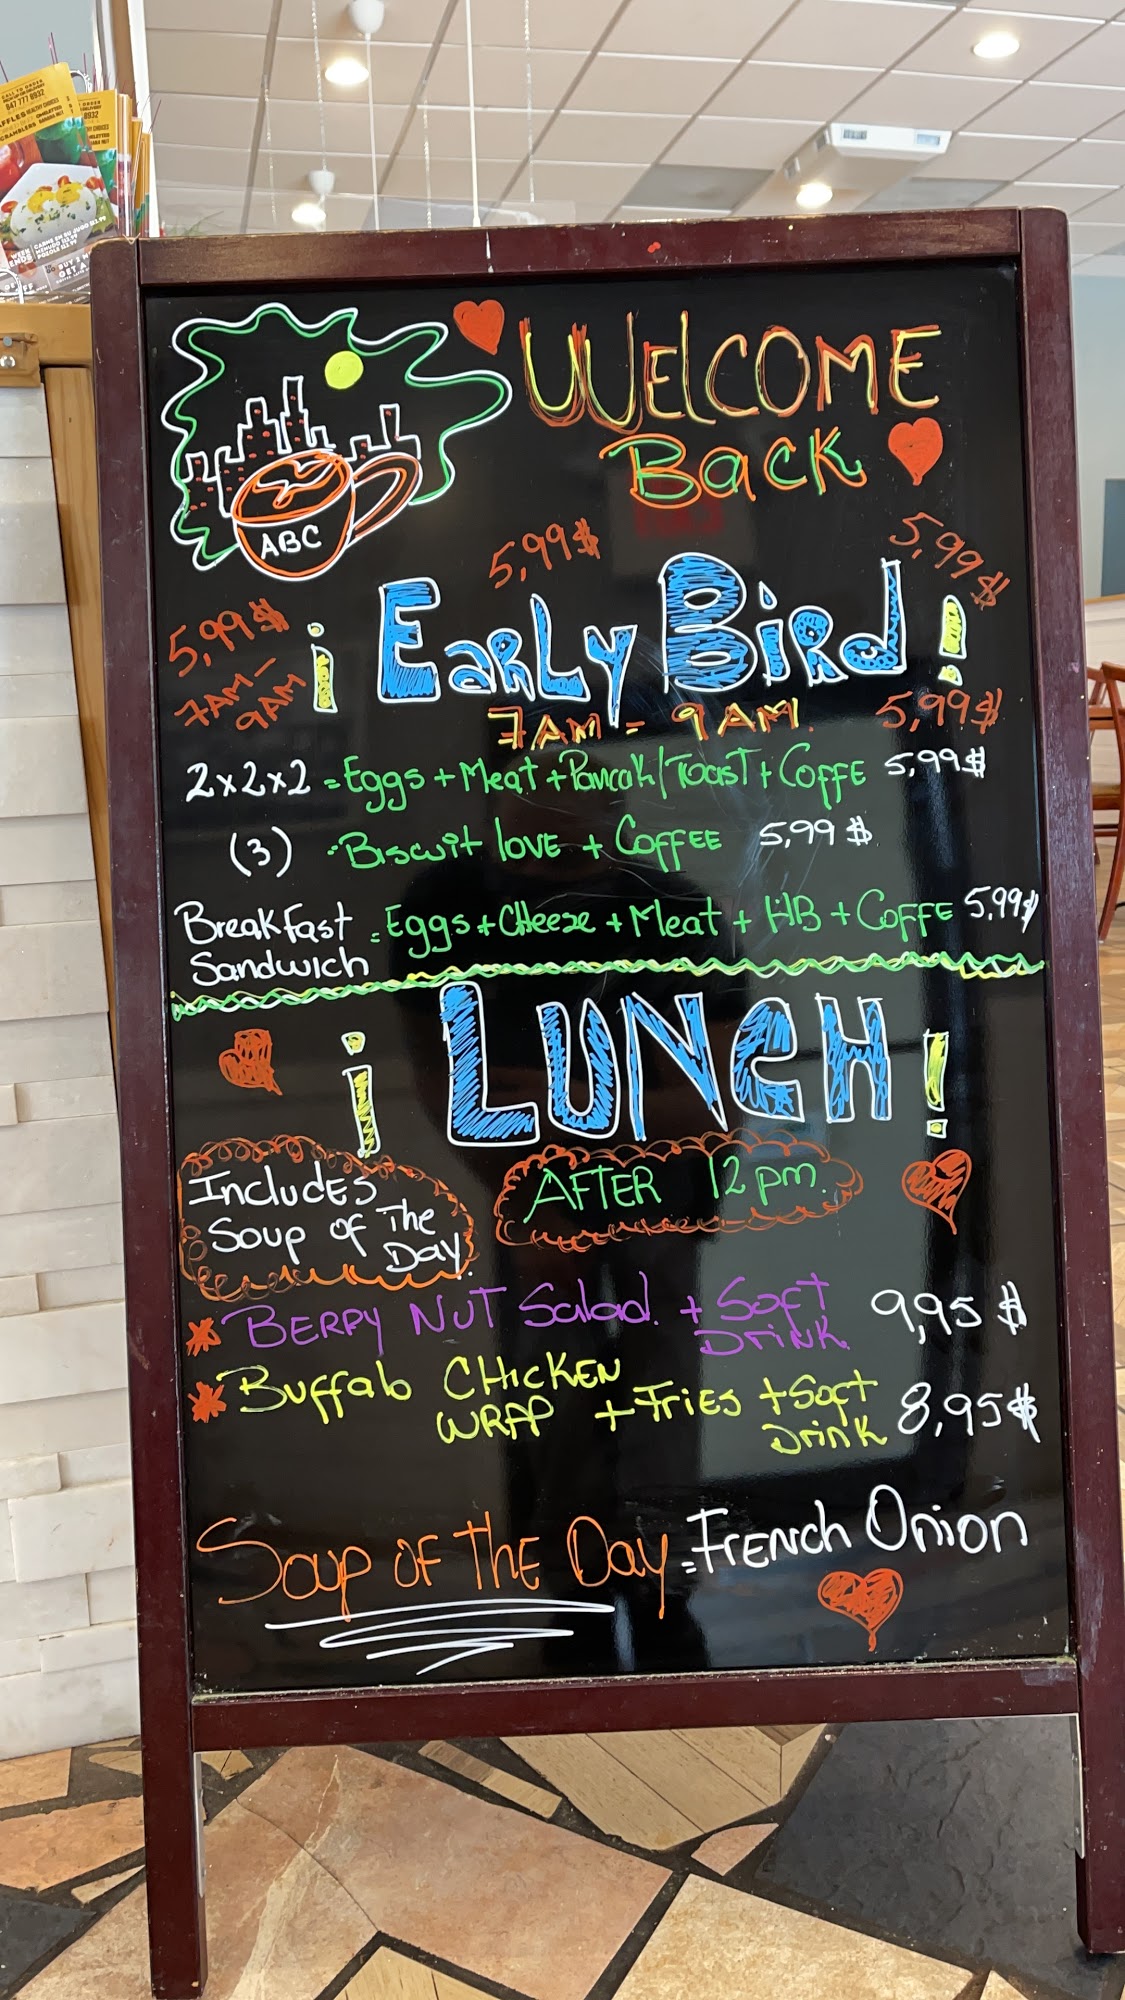 CALL TO ORDER
847 777 8932
WELCOME
BACK
ABC
5,99$
5,99$
5,99$
¡ EARLY BIRD !
7AM-
9AM
7AM - 9AM
5,99$
2x2x2 = Eggs + Meat + Pancak/Toast + COFFE 5,99$
(3) = Biscuit LOVE + COFFEE 5,99$
BreakFast
Sandwich = Eggs + CHeese + Meat + HB + COFFE 5,99$
¡ LUNCH !
IncludES
Soup of The
Day
AFTER 12 pm.
* BERRY NUT Salad + SOFT
DRINK 9,95 $
* Buffalo CHICKEN
WRAP + Fries + Soft
Drink 8,95$
Soup OF THE Day = FRENCH Onion